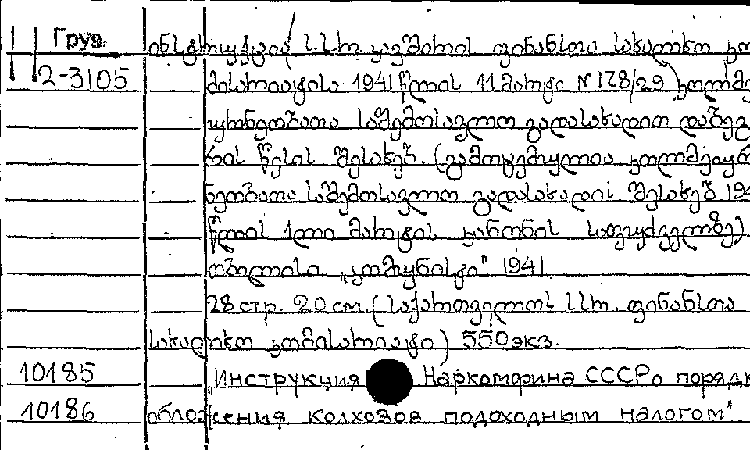 Груз. ინსტრუქცია ს.ს.რ. კავშირის ფინანსთა სახალხო კო
2-3105 მისარიატისა 1941 წლის 11 მარტი N 178/29 კოლმე
ურნეობათა საშემოსავლო გადასახადით დაბეგ
რის წესის შესახებ. (გამოცემულია კოლმეურ
ნეობათა საშემოსავლო გადასახადის შესახებ 19
წლის 1ლი მარტის კანონის საფუძველზე)
თბილისი „კომუნისტი" 1941.
28 стр. 20 см. (საქართველოს სსრ. ფინანსთა
სახალხო კომისარიატი) 550 экз.
10185 „Инструкция Наркомфина СССР о порядк
10186 обложения колхозов подоходным налогом"